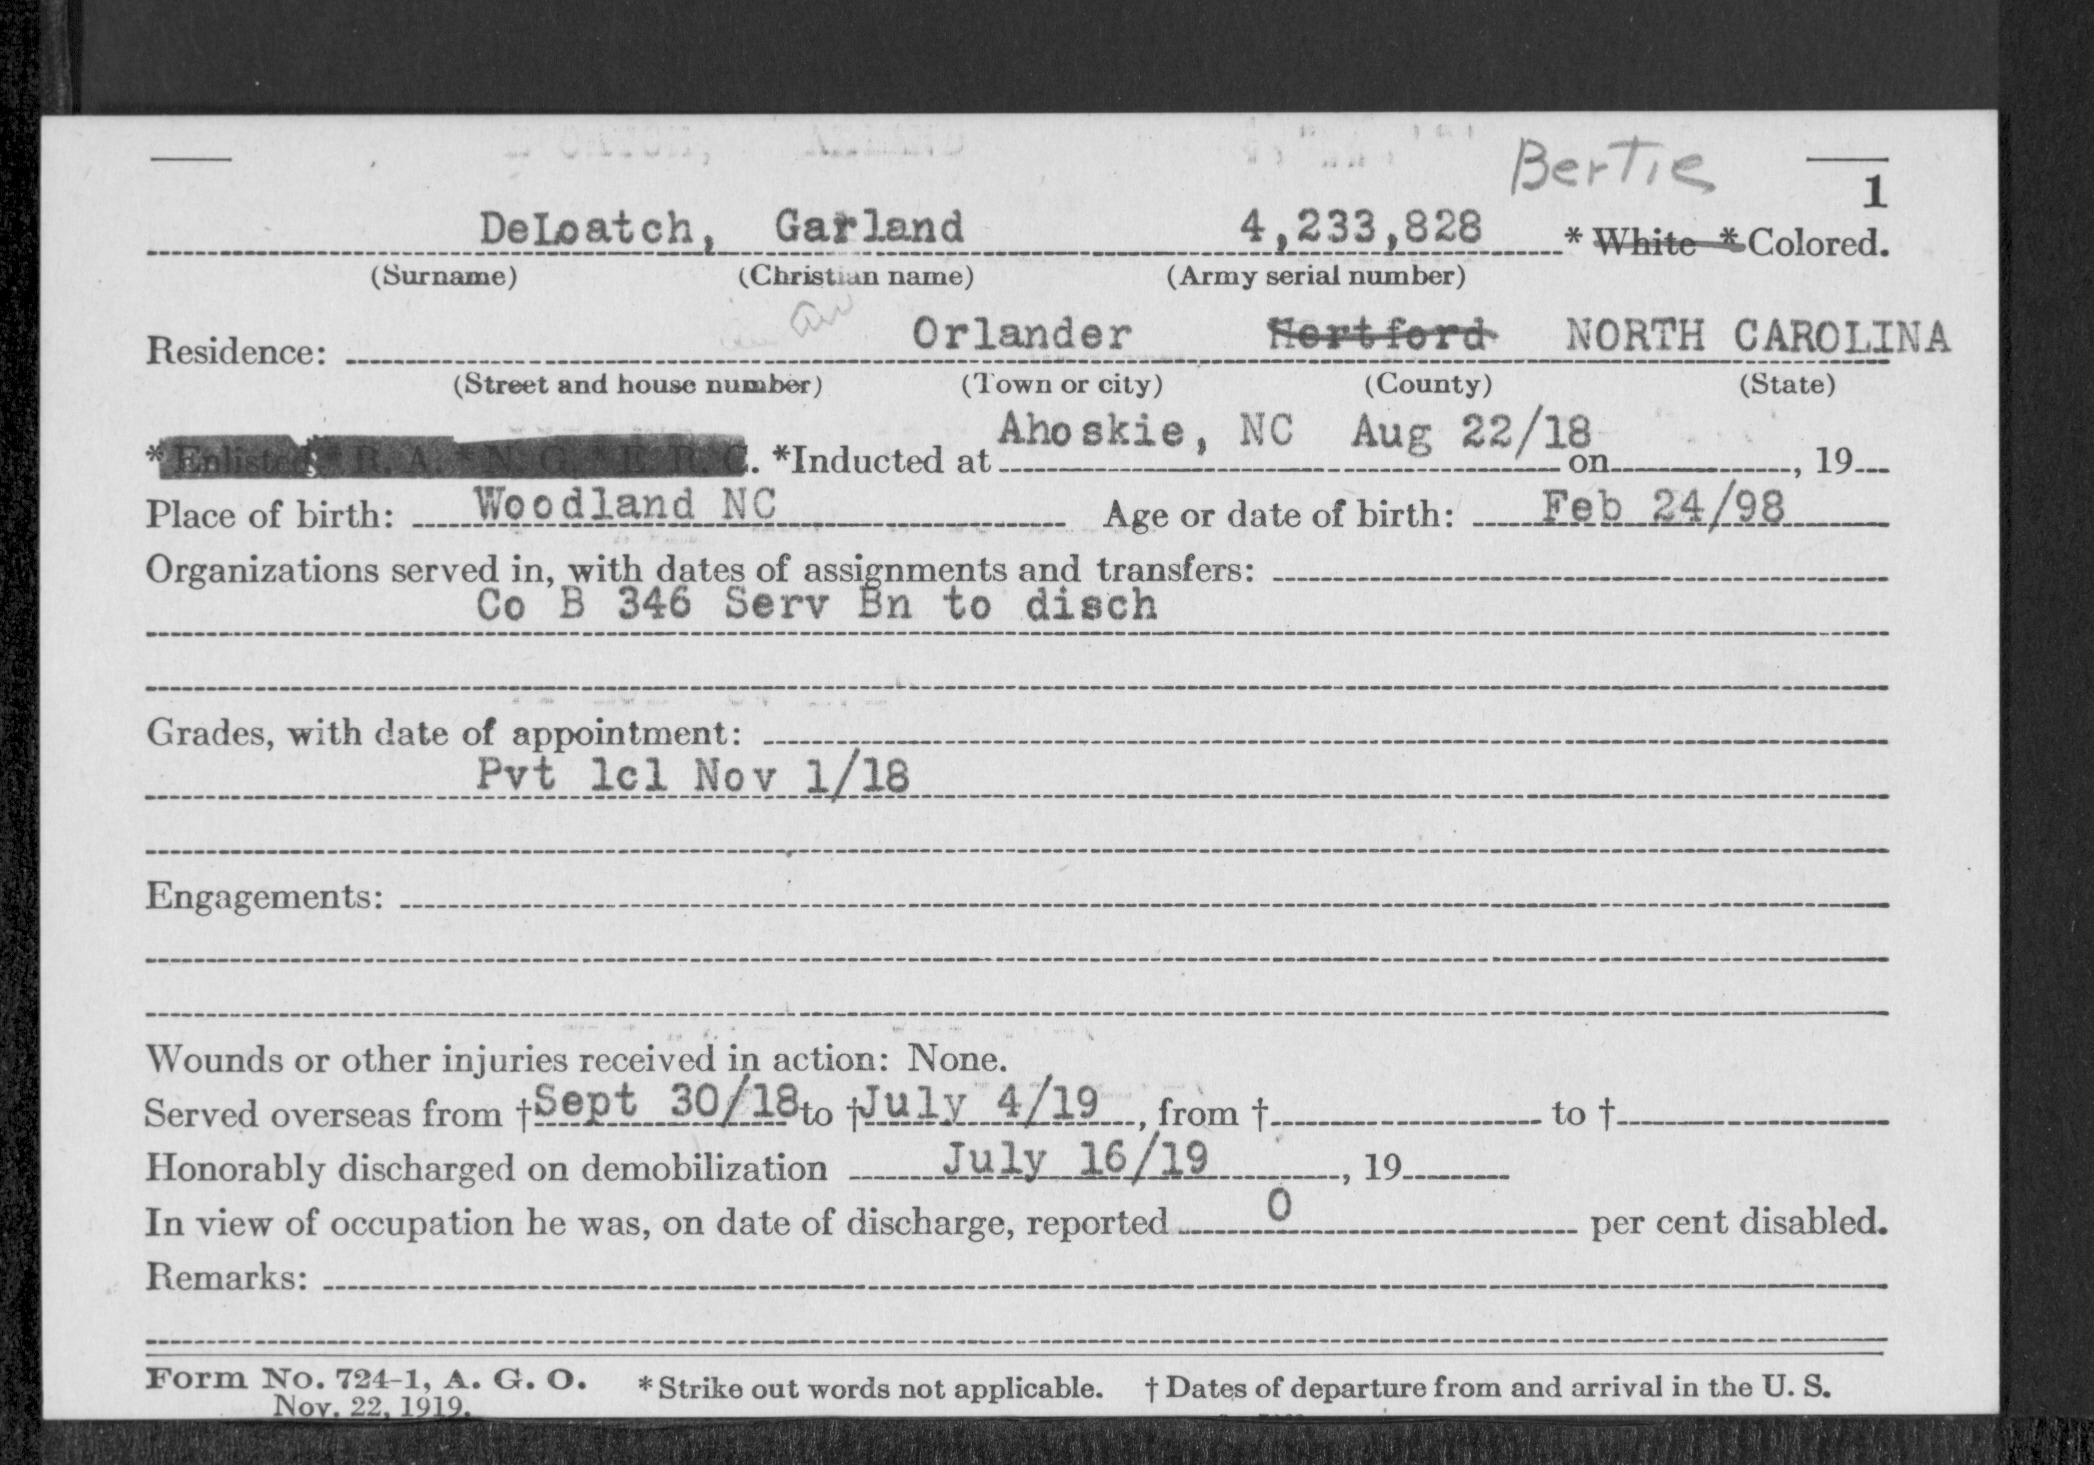 Bertie
1
DeLoatch, Garland 4,233,828 * White * Colored.
(Surname) (Christian name) (Army serial number)
Residence: Orlander Hertford NORTH CAROLINA
(Street and house number) (Town or city) (County) (State)
* Enlisted * R. A. * N. G. * E. R. C. *Inducted at Ahoskie, NC Aug 22/18 on , 19
Place of birth: Woodland NC Age or date of birth: Feb 24/98
Organizations served in, with dates of assignments and transfers:
Co B 346 Serv Bn to disch
Grades, with date of appointment:
Pvt 1cl Nov 1/18
Engagements:
Wounds or other injuries received in action: None.
Served overseas from † Sept 30/18 to † July 4/19, from † to †
Honorably discharged on demobilization July 16/19, 19
In view of occupation he was, on date of discharge, reported 0 per cent disabled.
Remarks:
Form No. 724-1, A. G. O. * Strike out words not applicable. † Dates of departure from and arrival in the U. S.
Nov. 22, 1919.